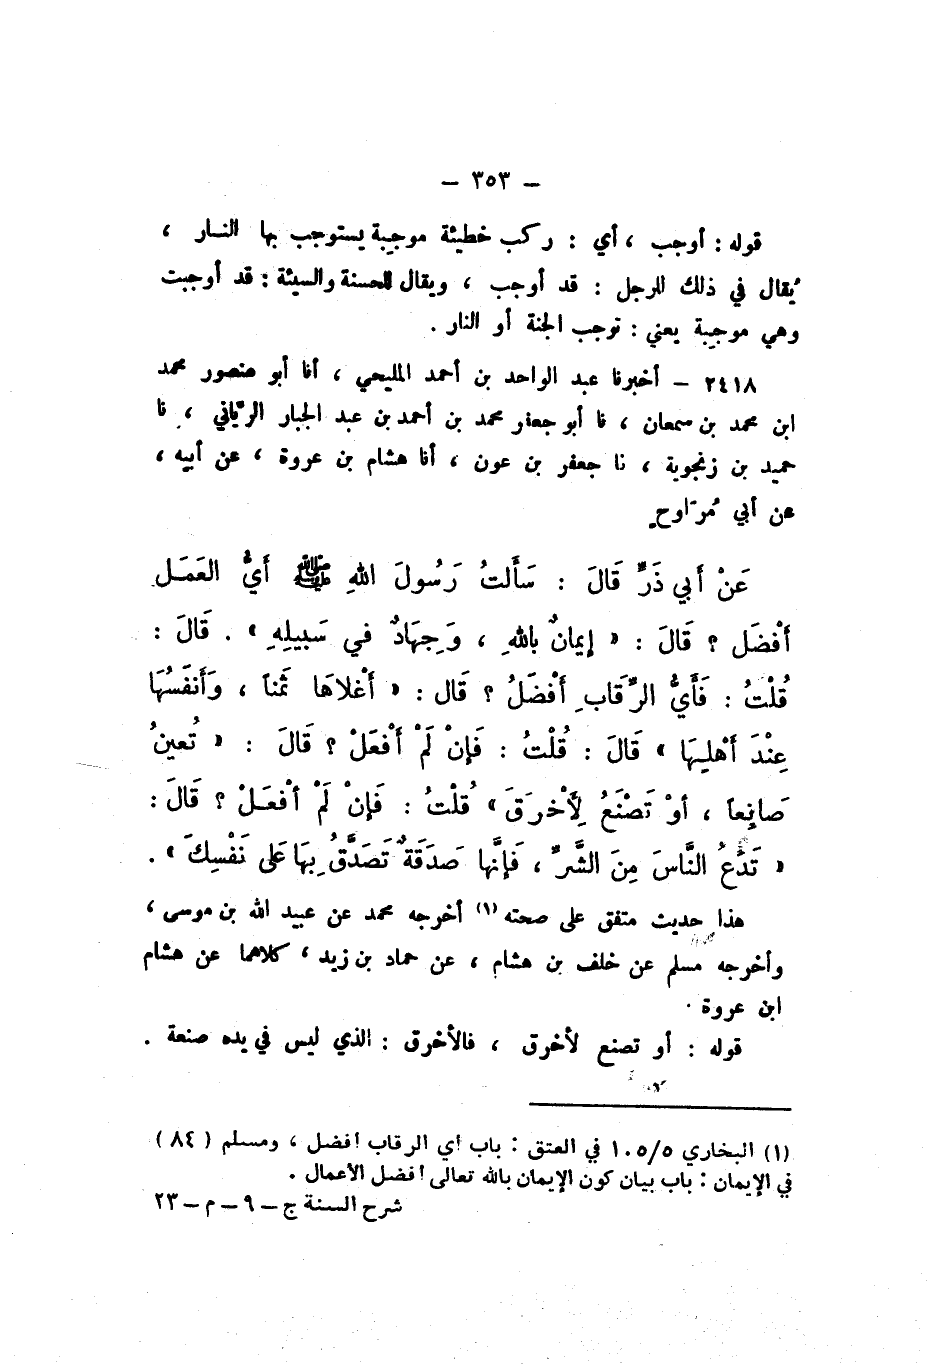 – ٣٥٣ –
قوله : أوجب ، أي : ركب خطيئة موجِبة يستوجب بها النـار ،
يُقال في ذلك للرجل : قد أوجب ، ويقال للحسنة والسيئة : قد أوجبت
وهي موجِبة يعني : توجب الجنة أو النار .
٢٤١٨ – أخبرنا عبد الواحد بن أحمد المليحي ، أنا أبو منصور محمد
ابن محمد بن سمعان ، نا أبو جعفر محمد بن أحمد بن عبد الجبار الريَّاني ، نا
حميد بن زنجوية ، نا جعفر بن عون ، أنا هشام بن عروة ، عن أبيه ،
عن أبي مُرَاوِح
عَنْ أَبِي ذَرٍّ قَالَ : سَأَلتُ رَسُولَ اللهِ ﷺ أَيُّ العَمَـلِ
أَفْضَل ؟ قَالَ : « إِيمَانٌ بِاللهِ ، وَجِهَادٌ في سَبِيلِهِ » . قَالَ :
قُلْتُ : فَأَيُّ الرِّقَابِ أَفْضَلُ ؟ قَال : « أَغْلاهَا ثَمَناً ، وَأَنفَسُهَا
عِنْدَ أَهْلِهَا » قَالَ : قُلْتُ : فَإِنْ لَمْ أَفْعَلْ ؟ قَالَ : « تُعينُ
صَانِعاً ، أوْ تَصْنَعُ لِأَخْرَقَ » قُلْتُ : فَإِنْ لَمْ أفْعَـلْ ؟ قَالَ :
« تَدَعُ النَّاسَ مِنَ الشَّرِّ ، فَإِنَّها صَدَقَةٌ تَصَدَّقُ بِهَا عَلى نَفْسِكَ » .
هذا حديث متفق على صحته (١) أخرجه محمد عن عبيد الله بن موسى ،
وأخرجه مسلم عن خلف بن هشام ، عن حماد بن زيد ، كلاهما عن هشام
ابن عروة .
قوله : أو تصنع لأخرق ، فالأخرق : الذي ليس في يده صنعة .
(١) البخاري ١٠٥/٥ في العتق : باب أي الرقاب أفضل ، ومسلم (٨٤)
في الإيمان : باب بيان كون الإيمان بالله تعالى أفضل الأعمال .
شرح السنة ج – ٩ – م – ٢٣